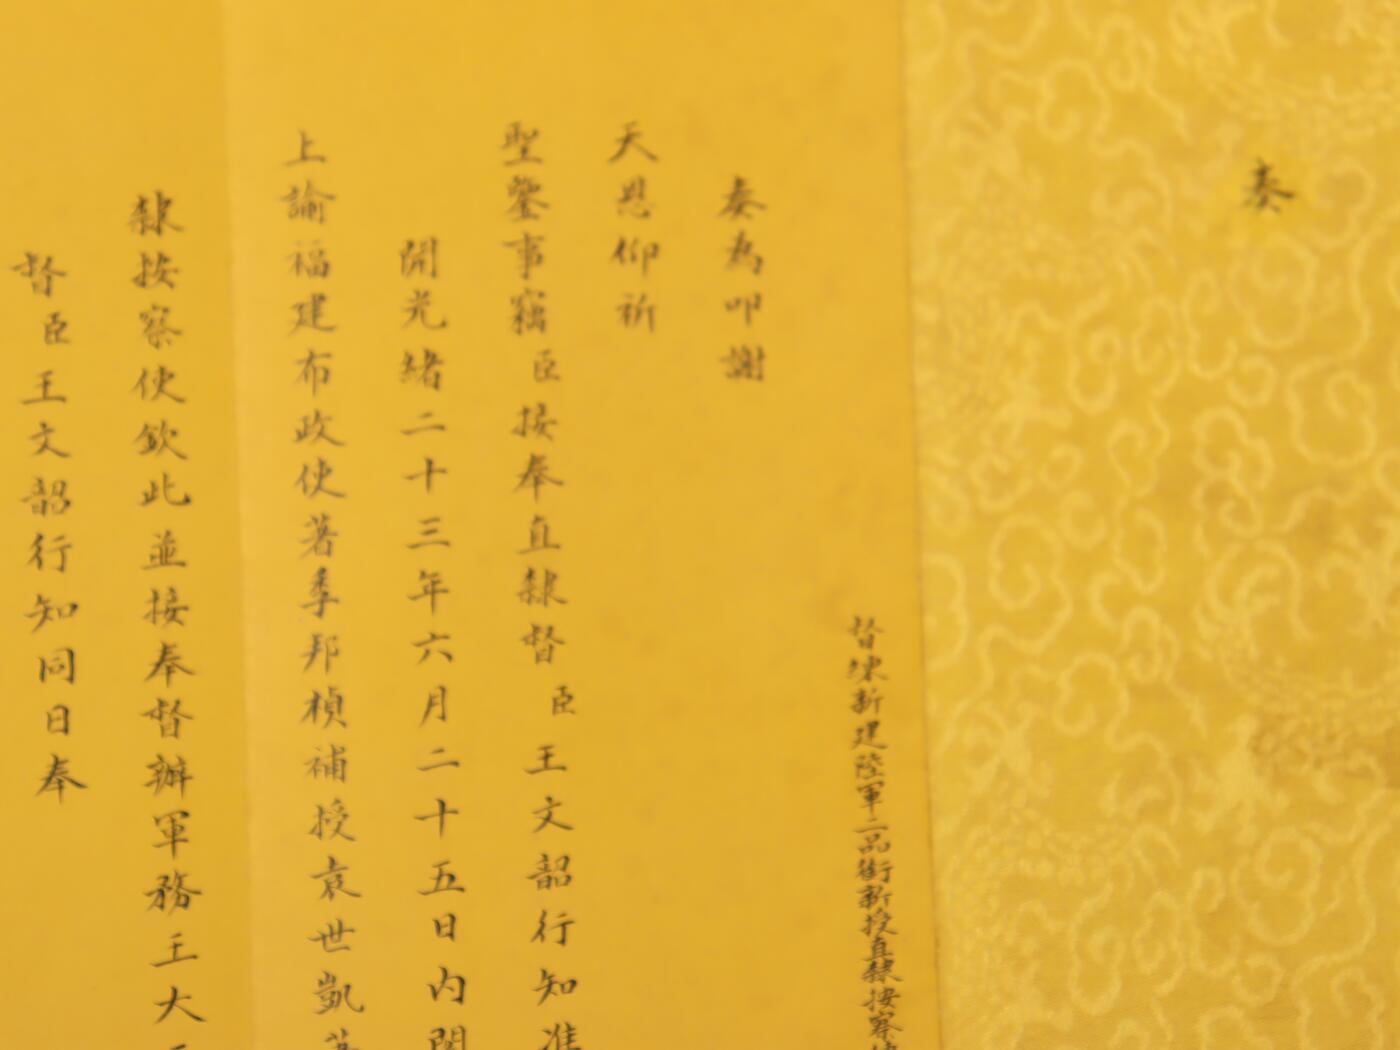 奏
督練新建陸軍二品銜新授直隸按察使
奏為叩謝
天恩仰祈
聖鑒事竊臣接奉直隸督臣王文韶行知准
開光緒二十三年六月二十五日內閣
上諭福建布政使著季邦楨補授袁世凱著
隸按察使欽此並接奉督辦軍務王大
督臣王文韶行知同日奉